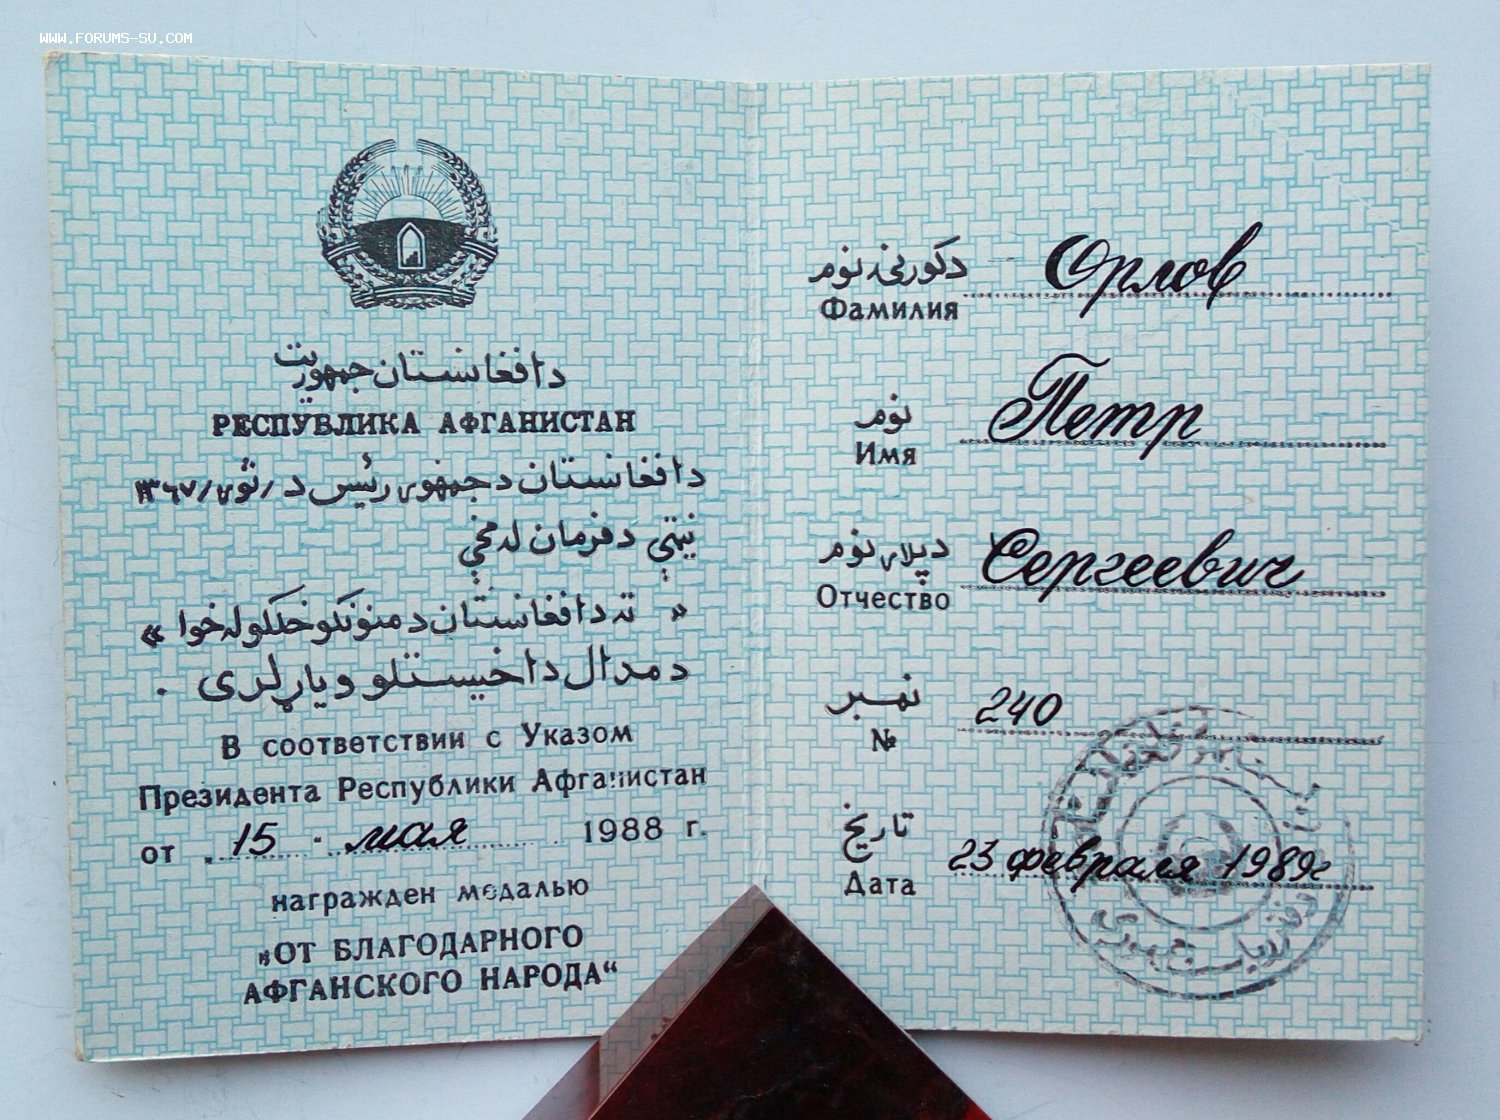 WWW.FORUMS-SU.COM
د افغانستان جمهوریت
РЕСПУБЛИКА АФГАНИСТАН
د افغانستان د جمهوری رئیس د / ثور / ١٣٦٧
نیټې د فرمان له مخې
« ته د افغانستان د منونکو خلکو له خوا »
د مدال د اخیستلو ویاړ لری .
В соответствии с Указом
Президента Республики Афганистан
от „ 15 “ мая 1988 г.
награжден медалью
„ОТ БЛАГОДАРНОГО
АФГАНСКОГО НАРОДА“
د کورنۍ نوم
Фамилия Орлов
نوم
Имя Петр
د پلار نوم
Отчество Сергеевич
نمبر
№ 240
تاریخ
Дата 23 февраля 1989г